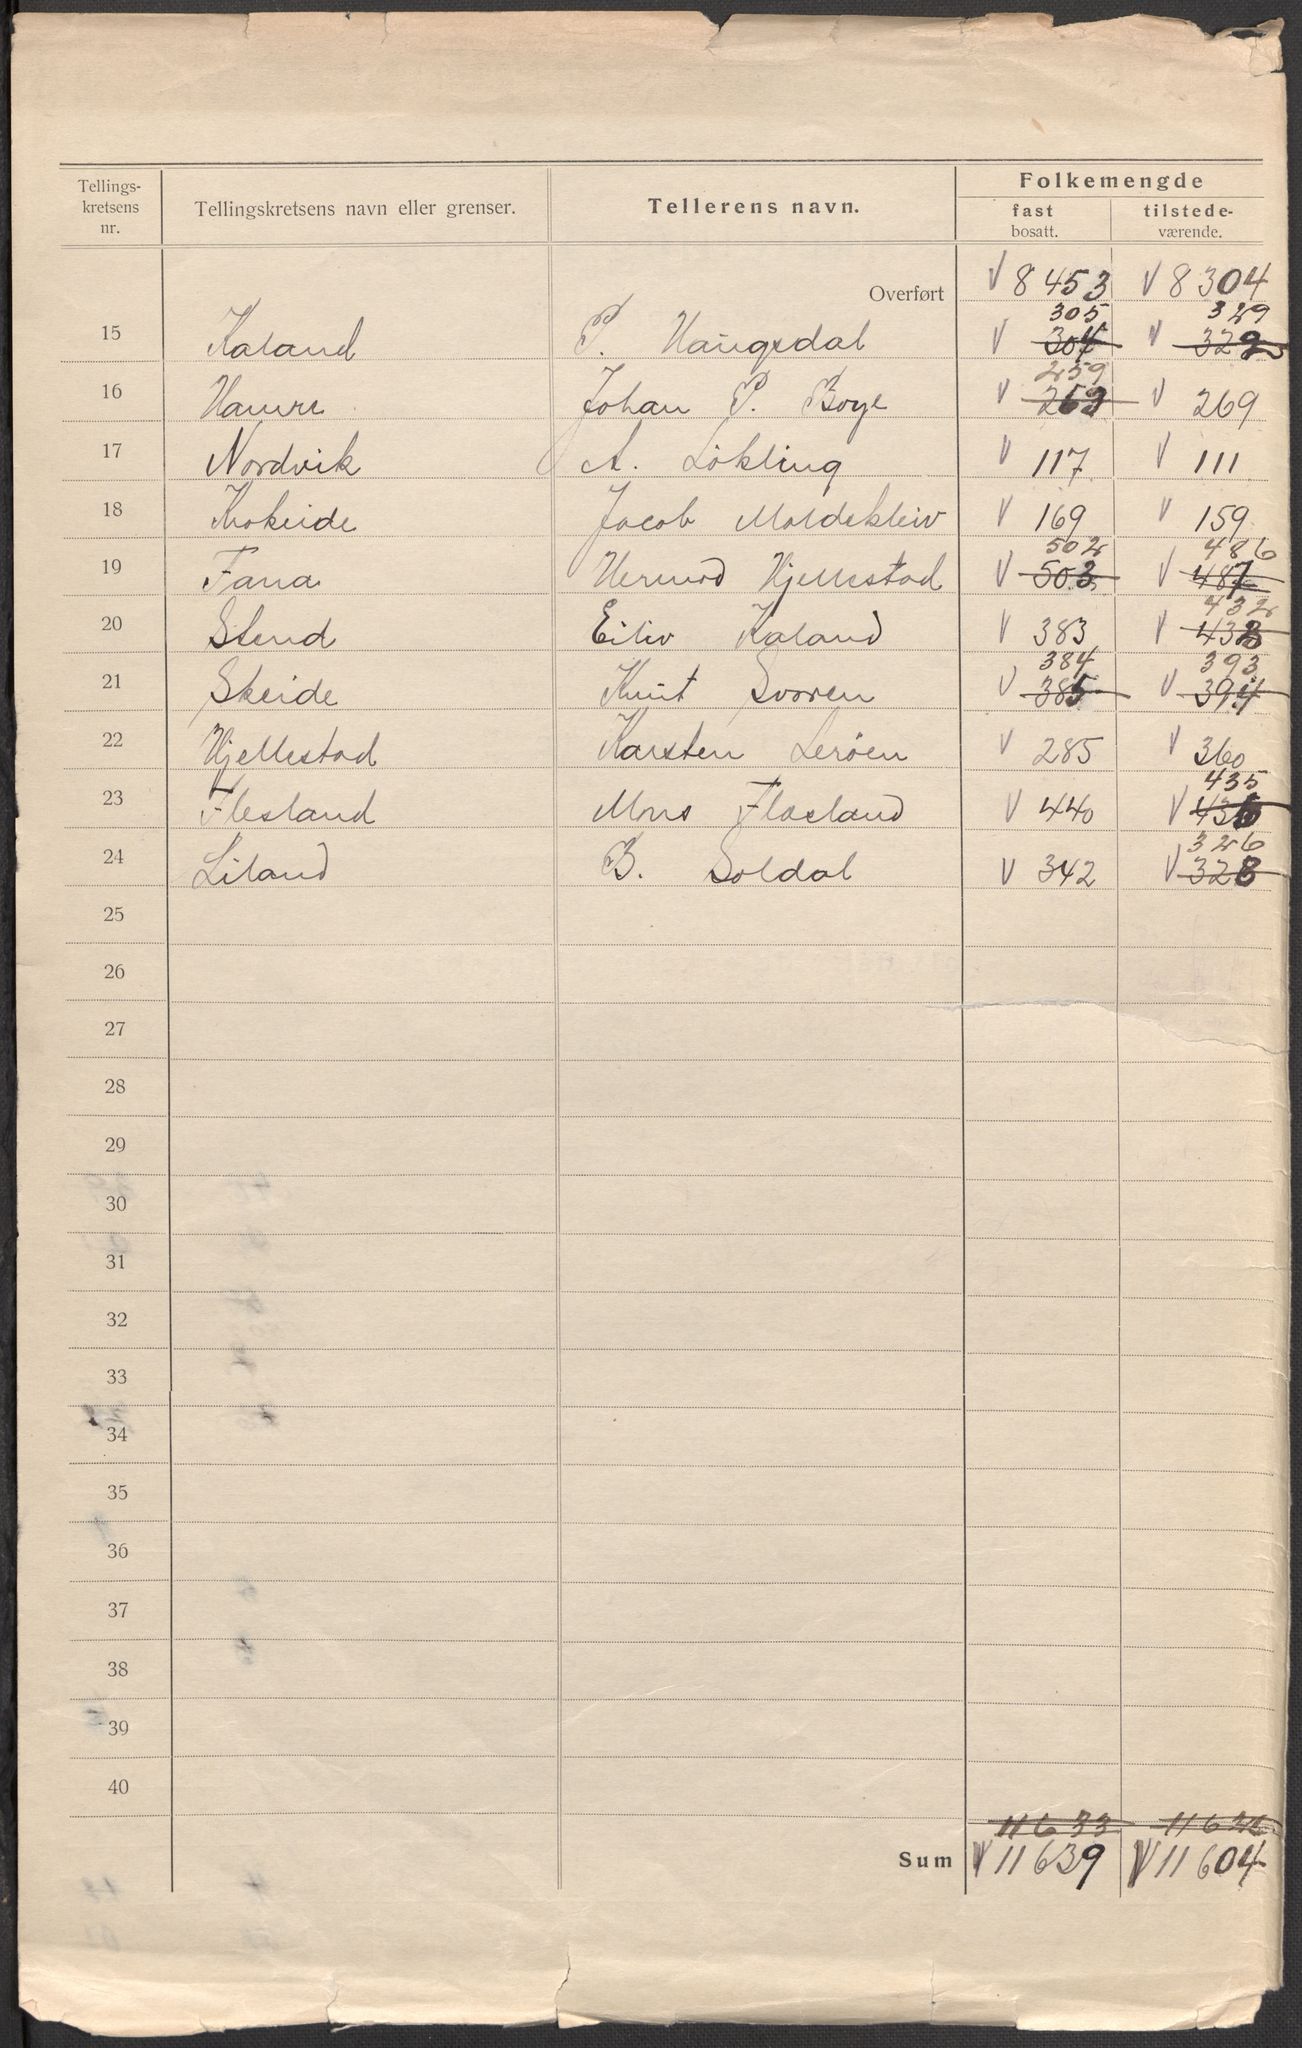 Tellings-kretsens nr. Tellingskretsens navn eller grenser. Tellerens navn. Folkemengde
fast bosatt. tilstede-værende.
Overført V 8453 V 8304
305 329
15 Kaland P. Haugsdal V 304 V 322
259
16 Hamre Johan P. Boge V 262 V 269
17 Nordvik A. Løkling V 117 V 111
18 Krokeide Jacob Moldekleiv V 169 V 159
502 486
19 Fana Hermod Hjellestad V 503 V 487
432
20 Stend Eiliv Kaland V 383 V 433
384 393
21 Skeide Knut Svoren V 385 V 394
22 Hjellestad Karsten Lerøen V 285 V 360
435
23 Flesland Mons Flesland V 440 V 436
326
24 Liland B. Soldal V 342 V 328
25
26
27
28
29
30
31
32
33
34
35
36
37
38
39
40
11633
Sum V 11639 V 11604